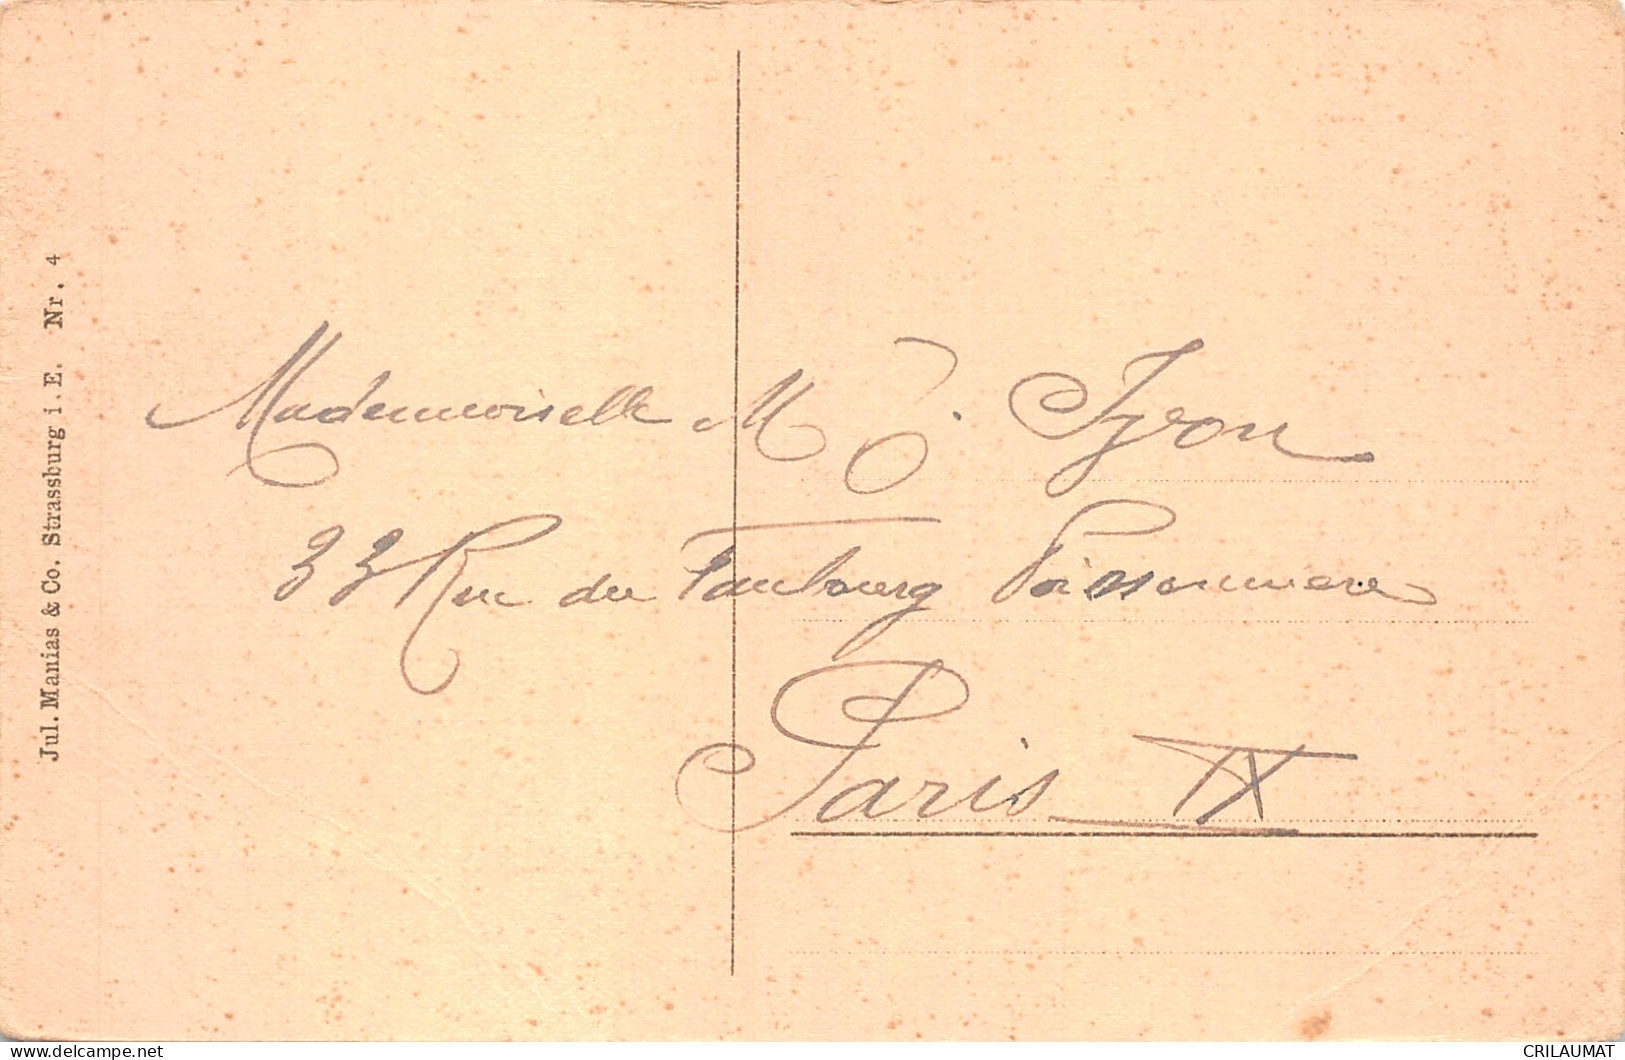 Jul. Manias & Co. Strassburg i. E. Nr. 4
Mademoiselle M
33 Rue du Faubourg Poissonniere
Paris IX
delcampe.net
CRILAUMAT